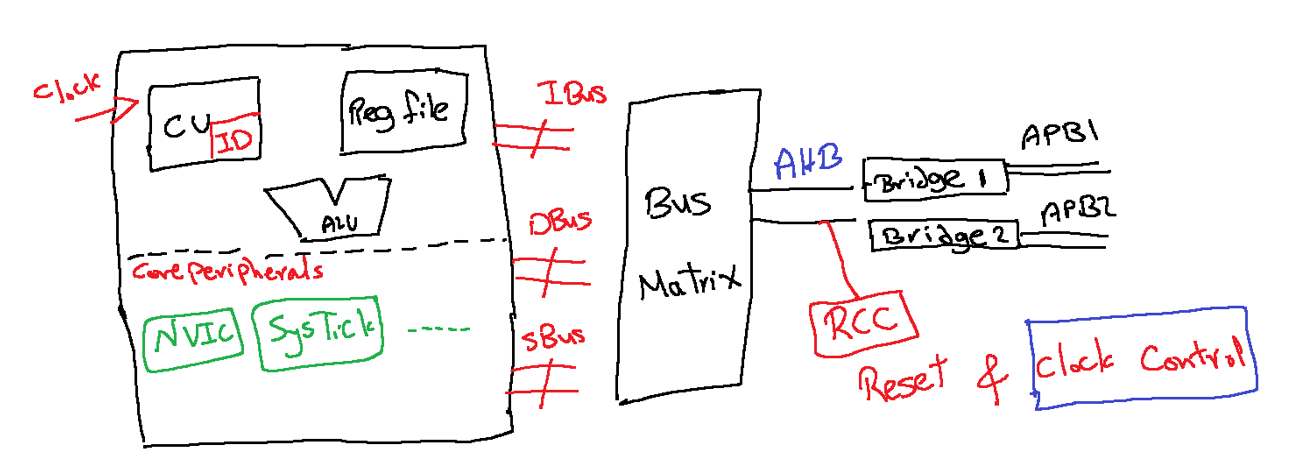 Clock
CU
ID
Reg file
ALU
Core Peripherals
NVIC
SysTick
IBus
DBus
SBus
Bus
Matrix
AHB
Bridge 1
APB1
Bridge 2
APB2
RCC
Reset & Clock Control